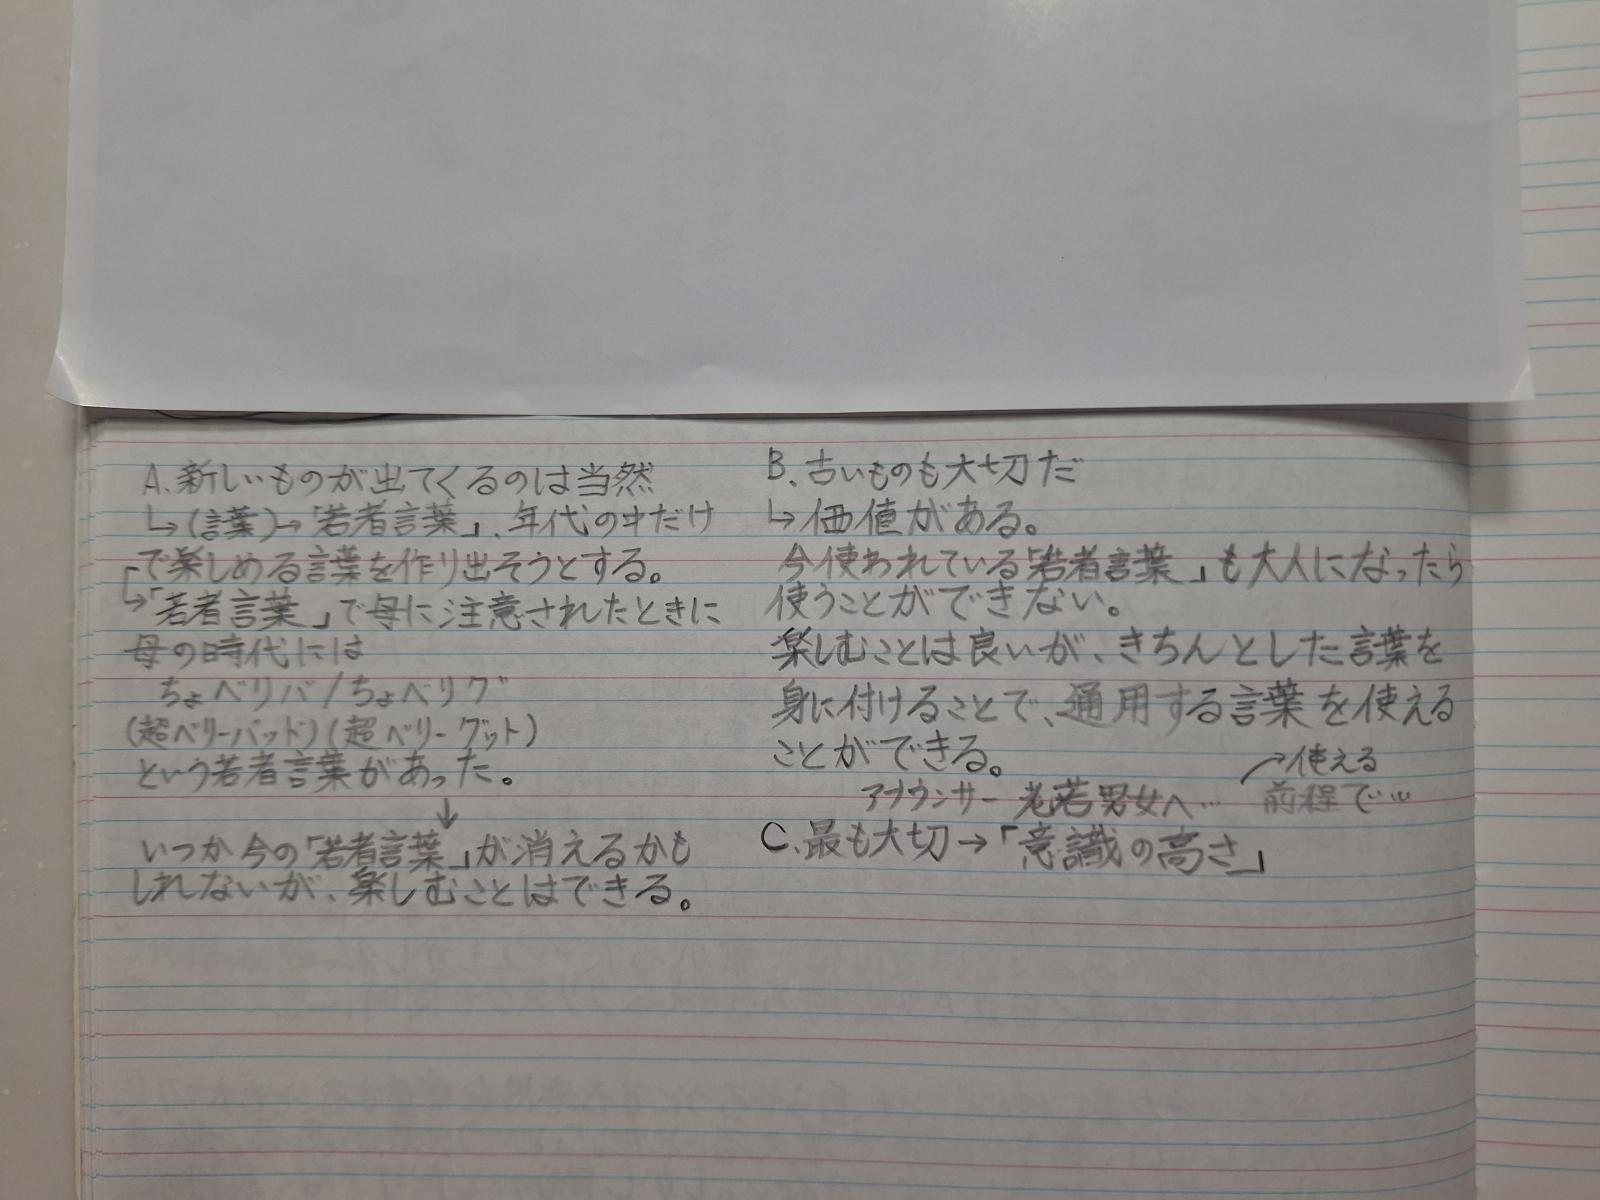 A.新しいものが出てくるのは当然
↳(言葉)→「若者言葉」、年代の中だけ
で楽しめる言葉を作り出そうとする。
↳「若者言葉」で母に注意されたときに
母の時代には
ちょベリバ/ちょベリグ
(超ベリーバッド)(超ベリーグット)
という若者言葉があった。
↓
いつか今の「若者言葉」が消えるかも
しれないが、楽しむことはできる。
B.古いものも大切だ
↳価値がある。
今使われている「若者言葉」も大人になったら
使うことができない。
楽しむことは良いが、きちんとした言葉を
身に付けることで、通用する言葉を使える
ことができる。
→使える
アナウンサー 老若男女へ… 前程で…
C.最も大切→「意識の高さ」